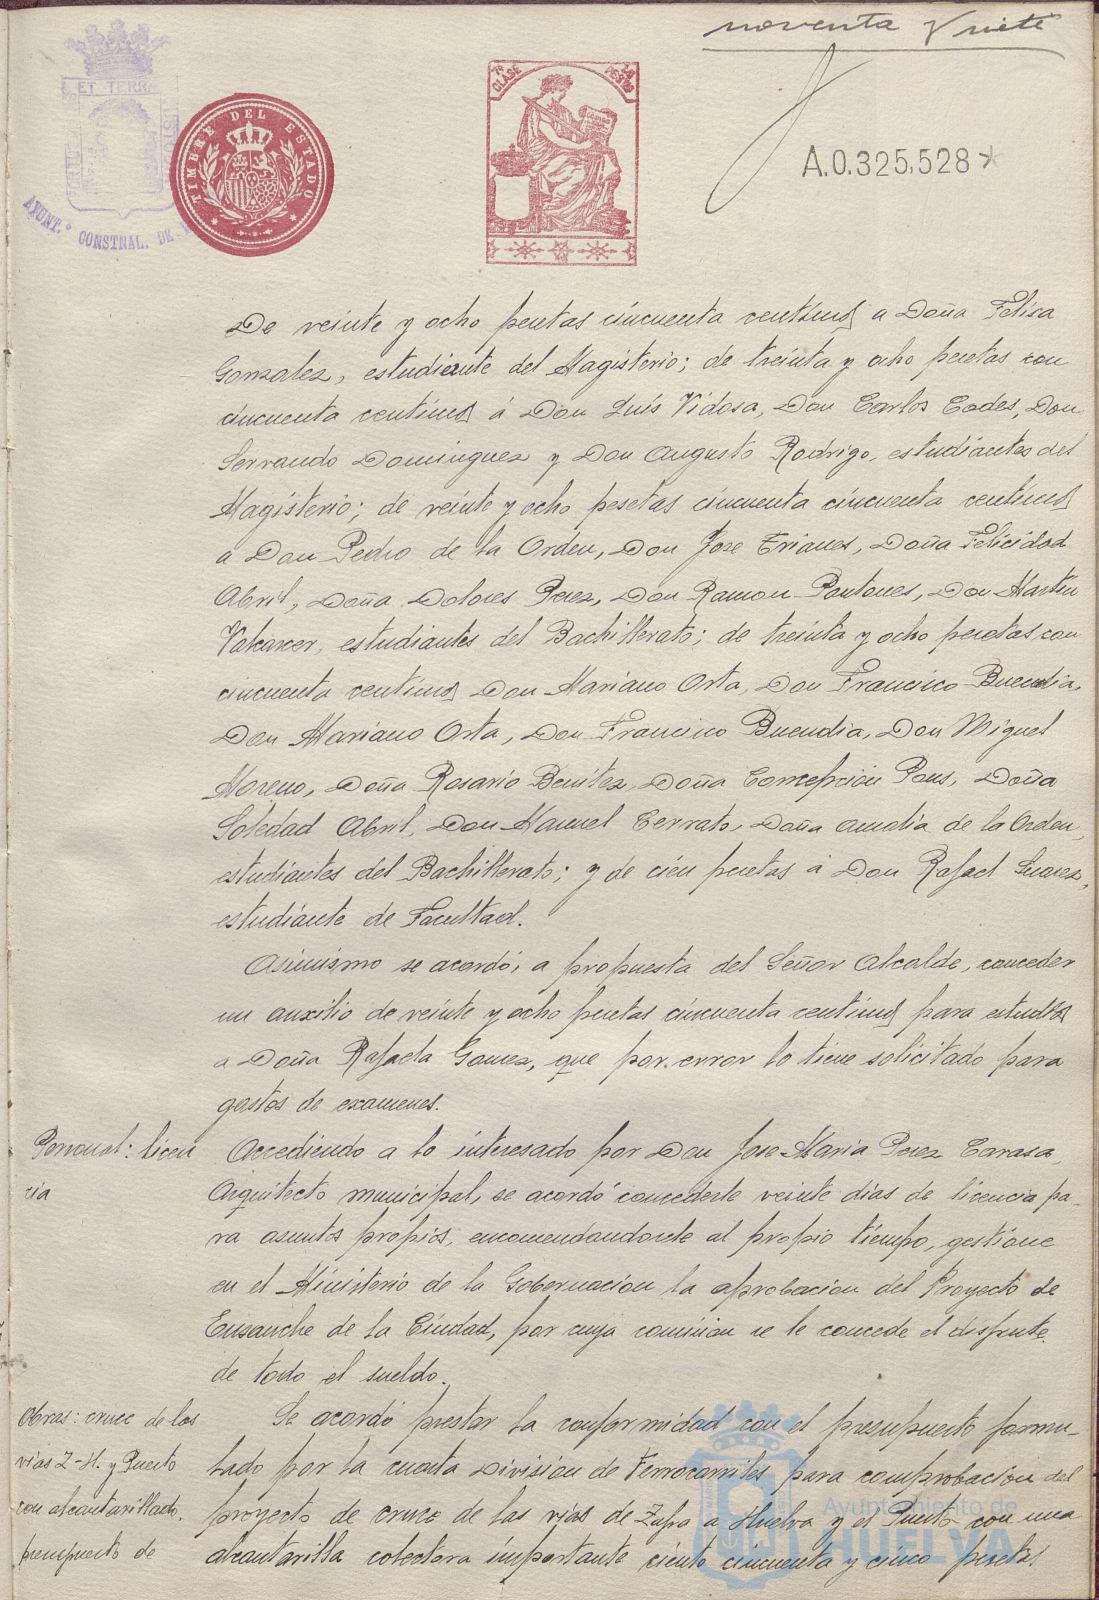 noventa y siete
ET TERRÆ
AYUNT.º CONSTNAL. DE
TIMBRE DEL ESTADO
7ª CLASE
A.0.325,528*
De veinte y ocho pesetas cincuenta centimos a Doña Felisa
Gonzalez, estudiante del Magisterio; de treinta y ocho pesetas con
cincuenta centimos á Don Luis Vidosa, Don Carlos Codes, Don
Servando Dominguez y Don Augusto Rodrigo, estudiantes del
Magisterio; de veinte y ocho pesetas cincuenta cincuenta centimos
a Don Pedro de la Orden, Don Jose Trianes, Doña Felicidad
Abril, Doña Dolores Perez, Don Ramon Pantones, Don Martin
Valcarcer, estudiantes del Bachillerato; de treinta y ocho pesetas con
cincuenta centimos Don Mariano Orta, Don Francisco Buendia,
Don Mariano Orta, Don Francisco Buendia, Don Miguel
Moreno, Doña Rosario Benitez, Doña Concepcion Pons, Doña
Soledad Abril, Don Manuel Cerrato, Doña Amalia de la Orden,
estudiantes del Bachillerato; y de cien pesetas á Don Rafael Suarez,
estudiante de Facultad.
Asimismo se acordó, a propuesta del Señor Alcalde, conceder
un auxilio de veinte y ocho pesetas cincuenta centimos para estudios
a Doña Rafaela Gomez, que por error lo tiene solicitado para
gastos de examenes.
Personal: licen
cia
Accediendo a lo interesado por Don Jose Maria Perez Carasa,
Arquitecto municipal, se acordó concederle veinte dias de licencia pa-
ra asuntos propios, encomendandosele al propio tiempo, gestione
en el Ministerio de la Gobernacion la aprobacion del Proyecto de
Ensanche de la Ciudad, por cuya comision se le concede el disfrute
de todo el sueldo.
Obras: cruce de las
vias Z-H. y Puerto
con alcantarillado,
presupuesto de
Se acordó prestar la conformidad con el presupuesto formu-
lado por la cuarta Division de Ferrocarriles para comprobacion del
proyecto de cruce de las vias de Zafra a Huelva y el Puerto con una
alcantarilla colectora importante ciento cincuenta y cinco pesetas
Ayuntamiento de
HUELVA